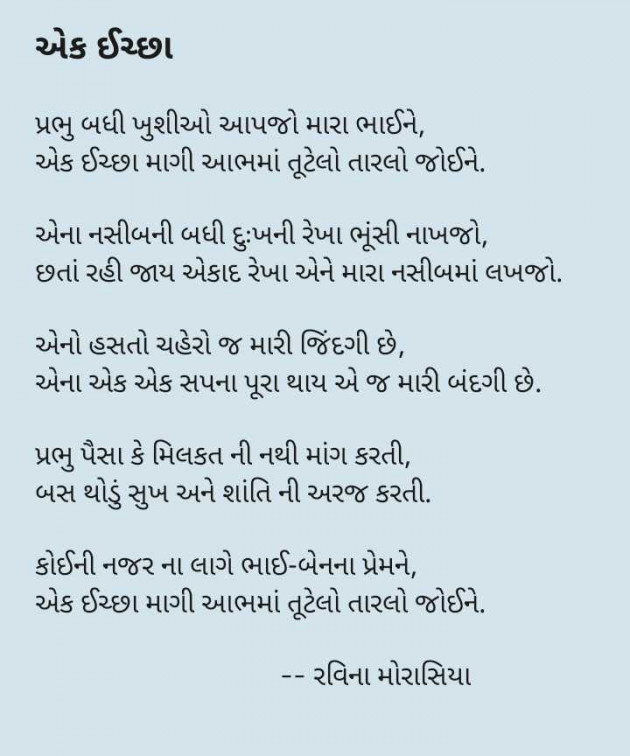 એક ઈચ્છા
પ્રભુ બધી ખુશીઓ આપજો મારા ભાઈને,
એક ઈચ્છા માગી આભમાં તૂટેલો તારલો જોઈને.
એના નસીબની બધી દુઃખની રેખા ભૂંસી નાખજો,
છતાં રહી જાય એકાદ રેખા એને મારા નસીબમાં લખજો.
એનો હસતો ચહેરો જ મારી જિંદગી છે,
એના એક એક સપના પૂરા થાય એ જ મારી બંદગી છે.
પ્રભુ પૈસા કે મિલકત ની નથી માંગ કરતી,
બસ થોડું સુખ અને શાંતિ ની અરજ કરતી.
કોઈની નજર ના લાગે ભાઈ-બેનના પ્રેમને,
એક ઈચ્છા માગી આભમાં તૂટેલો તારલો જોઈને.
-- રવિના મોરાસિયા